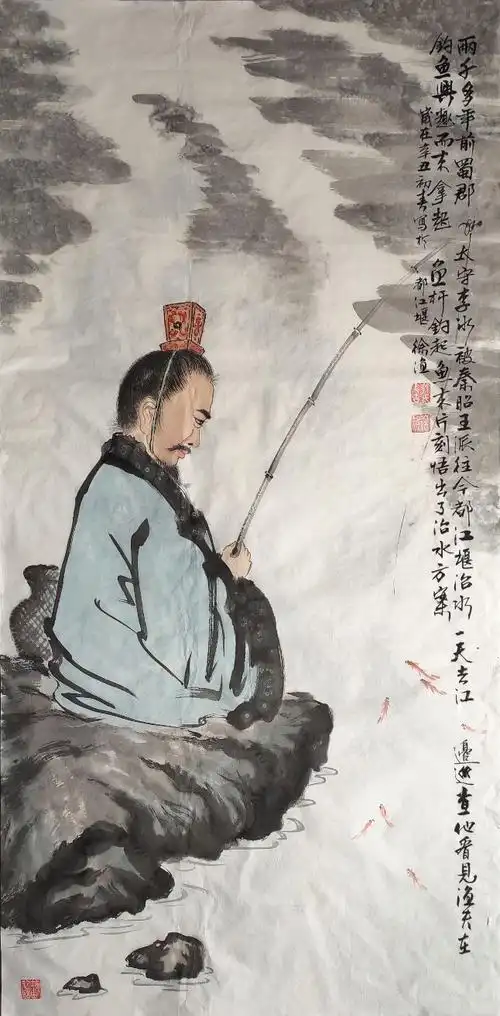 兩千多年前蜀郡太守李冰被秦昭王派往今都江堰治水一天去江邊巡查他看見渔夫在
釣鱼興趣而来拿起鱼杆釣起鱼来片刻悟出了治水方案
歲在辛丑初春寫於都江堰徐渔